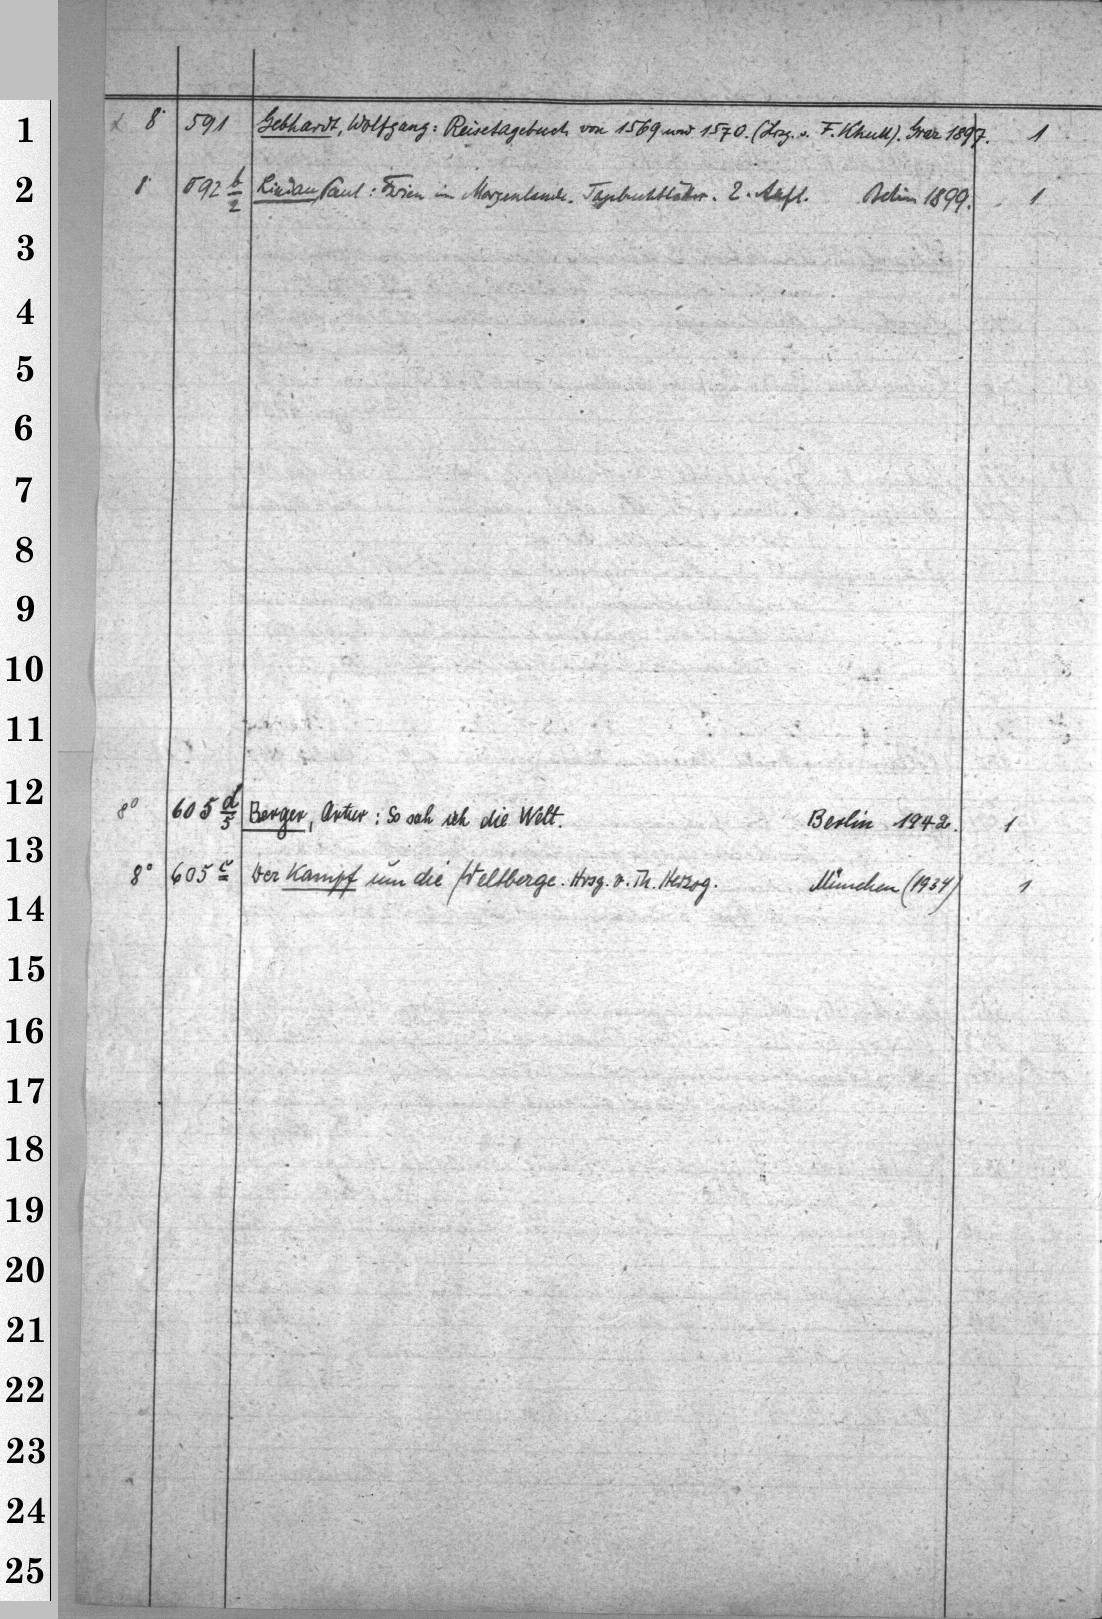 1
x 8° 591 Gebhardt, Wolfgang: Reisetagebuch von 1569 und 1570. (Hrsg. v. F. Khull). Graz 1897. 1
2
8° 592 b/2 Lindau, Paul: Ferien im Morgenlande. Tagebuchblätter. 2. Aufl. Berlin 1899. 1
3
4
5
6
7
8
9
10
11
12
8° 605 d/5 Berger, Artur: So sah ich die Welt. Berlin 1942. 1
13
8° 605 c Der Kampf um die Weltberge. Hrsg. v. Th. Herzog. München (1934) 1
14
15
16
17
18
19
20
21
22
23
24
25